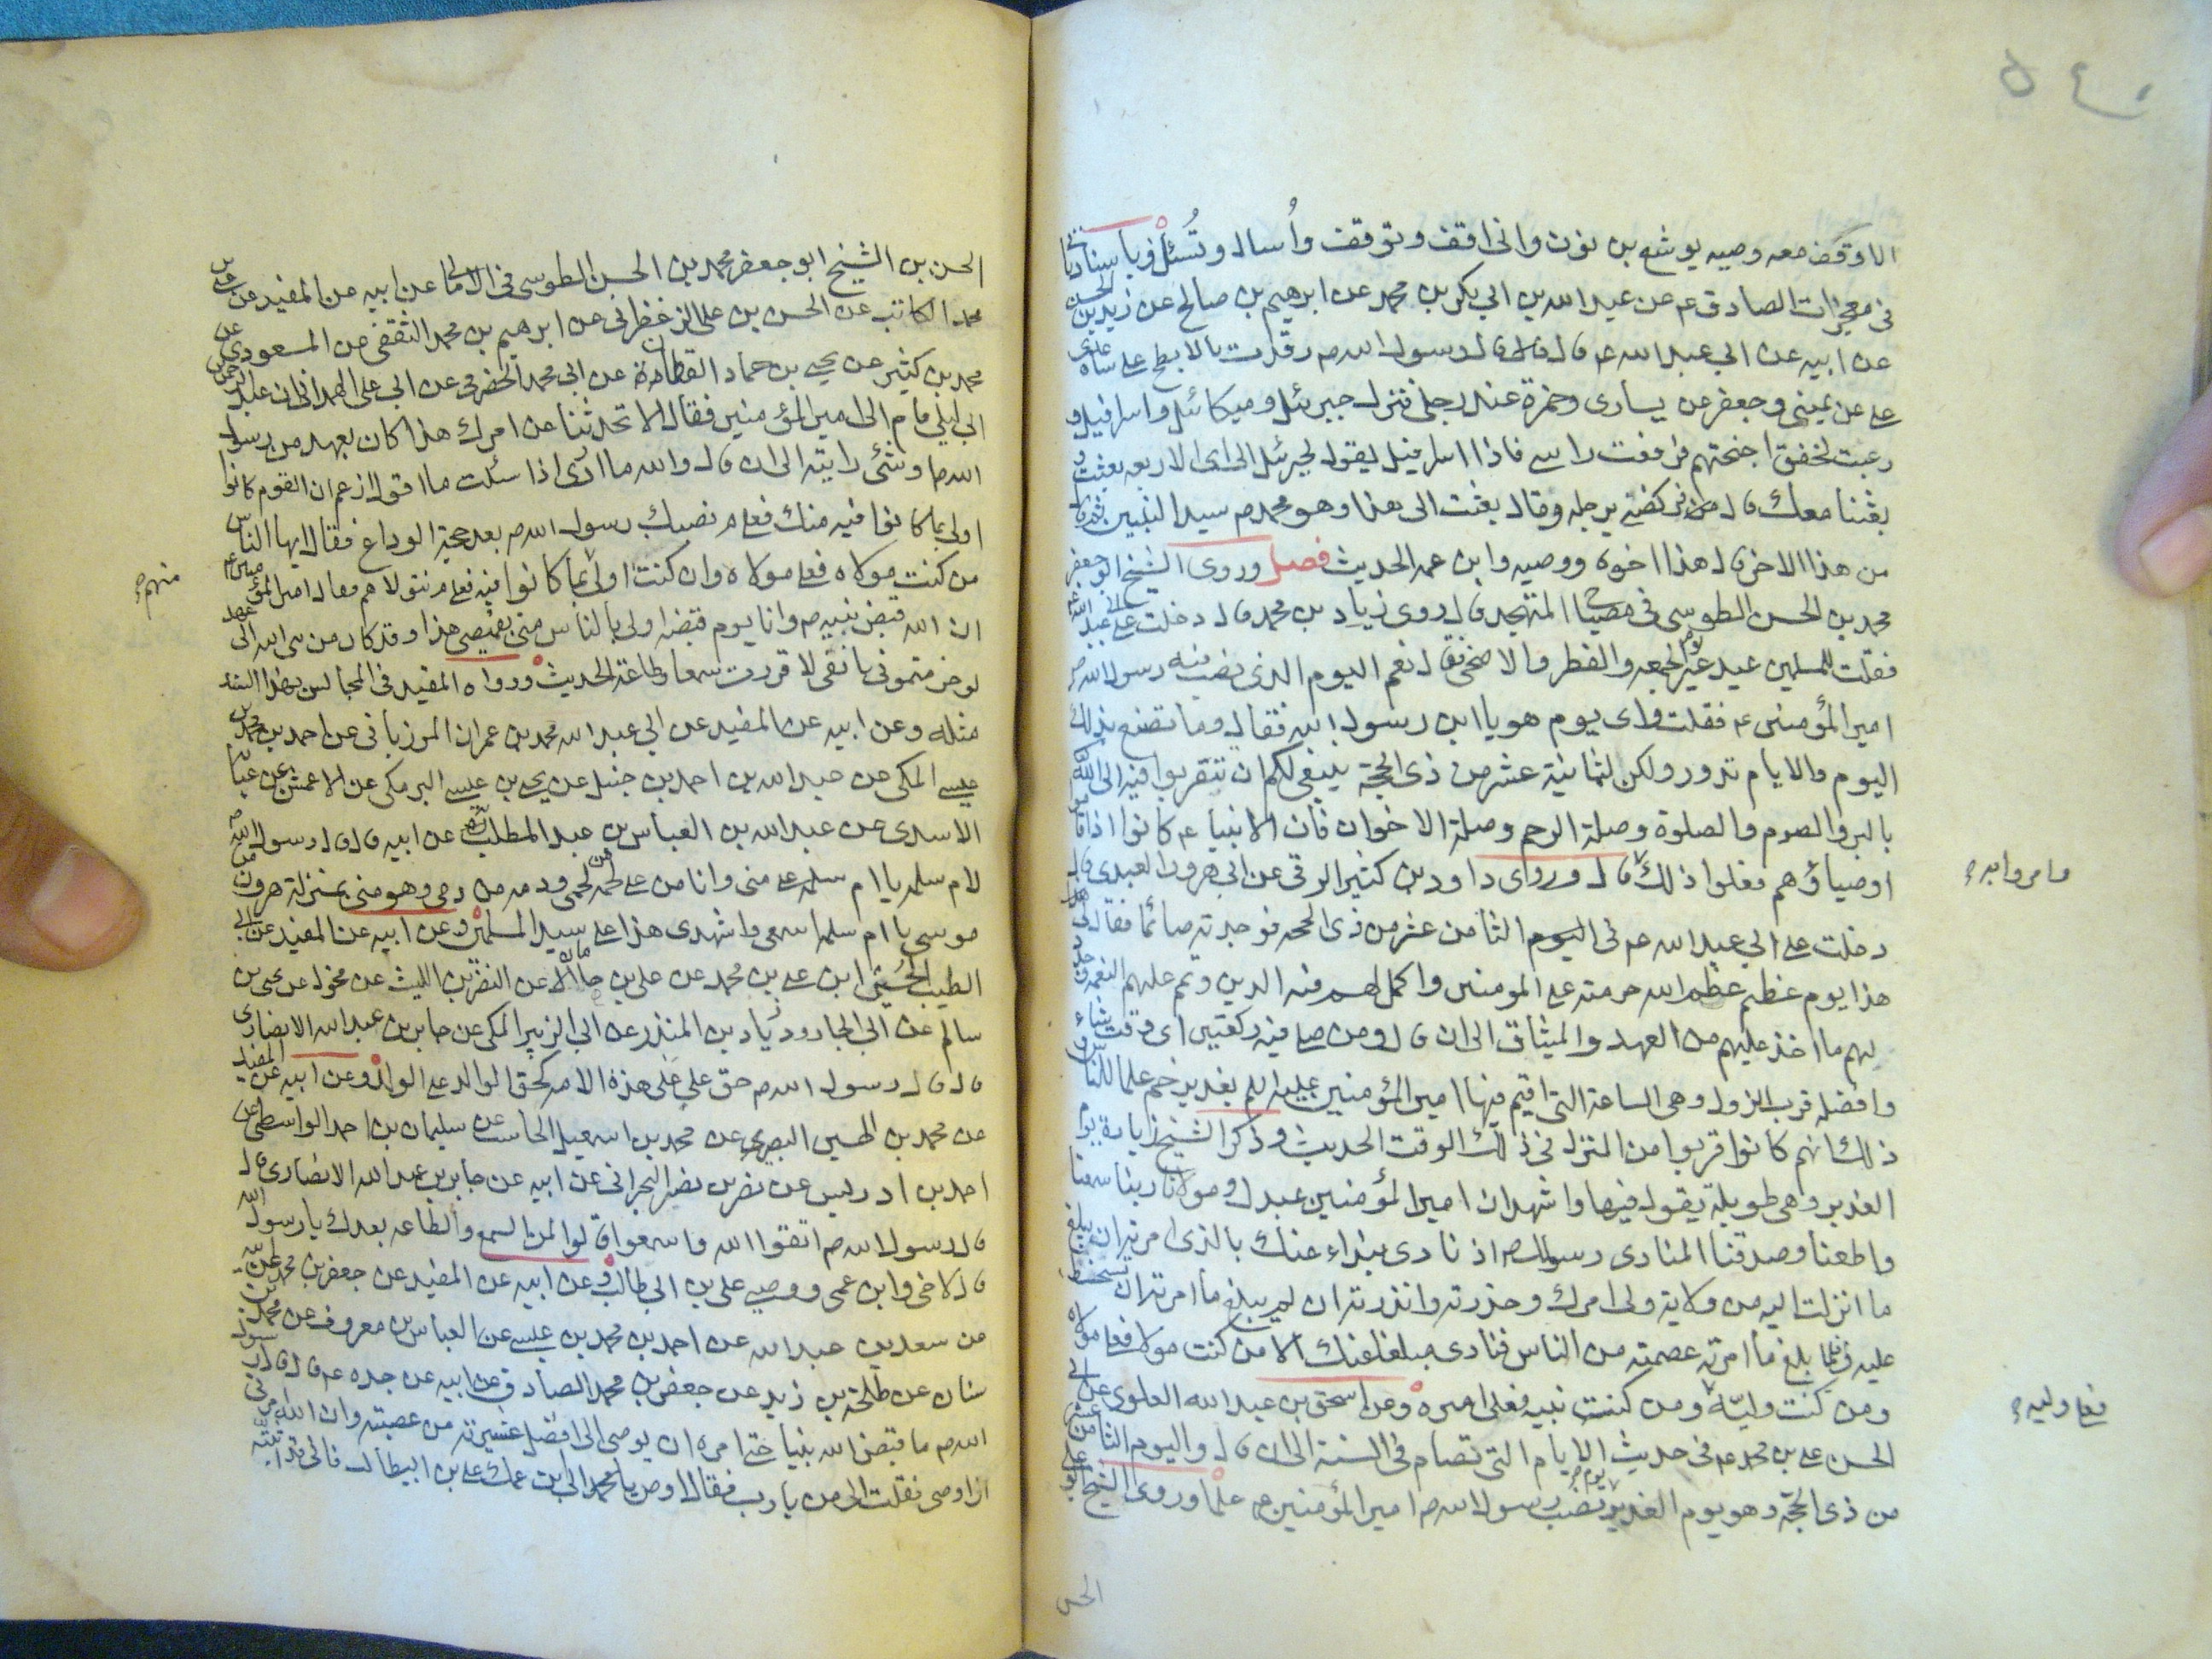 الا وقف معه وصيه يوشع بن نون وانى اقف وتوقف واُسال وتُسئل وباسناد
فى معجزات الصادق عم عن عبد الله بن ابي بكر بن محمد عن ابرهيم بن صالح عن زيد بن الحسن
عن ابيه عن ابي عبد الله عم قال قال رسول الله ص رقدت بالابطح على ساعدى
على عن يمينى وجعفر عن يسارى وحمزة عند رجلى فنزل جبرئل وميكائل واسرافيل و
رعبت لخفق اجنحتهم فرفعت راسى فاذا اسرافيل يقول لجبرئل الى اى الاربعه بعثت و
بعثنا معك قال فركضنى برجله وقال بعثت الى هذا وهو محمد ص سيد النبيين
من هذا الاخر قال هذا اخوه ووصيه وابن عمه الحديث فصل وروى الشيخ ابو جعفر
محمد بن الحسن الطوسى فى مصباح المتهجد قال روى زياد بن محمد قال دخلت على ابى عبد الله
فقلت للمسلمين عيد غير يوم الجمعه والفطر والاضحى قال نعم اليوم الذى نصب فيه رسول الله ص
امير المؤمنين ع فقلت واى يوم هو يا ابن رسول الله فقال وما تصنع بذلك
اليوم والايام تدور ولكن لثمانية عشر من ذى الحجة ينبغى لكم ان تتقربوا فيه الى الله
بالبر والصوم والصلوة وصلة الرحم وصلة الاخوان فان الانبياء ع كانوا اذا اقاموا
اوصياؤهم فعلوا ذلك قال وروى داود بن كثير الرقى عن ابى هرون العبدى قال
وامروا به
دخلت على ابي عبد الله عم فى اليوم الثامن عشر من ذى الحجه فوجدته صائما فقال لى
هذا يوم عظيم عظم الله حرمته على المومنين واكمل لهم فيه الدين وتمم عليهم النعمه وجدد
لهم ما اخذ عليهم من العهد والميثاق الى ان قال ومن صلى فيه ركعتين اى وقت شاء
وافضله قرب الزوال وهى الساعة التى اقيم فيها امير المؤمنين عليه السلم بغدير خم علما للناس و
ذلك انهم كانوا قربوا من المنزل فى ذلك الوقت الحديث وذكر الشيخ زيارة يوم
الغدير وهى طويلة يقول فيها واشهد ان امير المؤمنين عبدك ومولانا ربنا سمعنا
واطعنا وصدقنا المنادى رسولك ص اذ نادى بنداء عنك بالذى امرته ان يبلغ
ما انزلت اليه من ولاية ولى امرك وحذرته وانذرته ان لم يبلغ ما امرته ان تسخط
عليه فلما بلغ ما امرته عصمته من الناس فنادى مبلغا عنك الا من كنت مولاه فعلى مولاه
ومن كنت وليّه ومن كنت نبيه فعلى اميره وعن اسحق بن عبد الله العلوى عن ابى
فعلى وليه
الحسن على بن محمد عم فى حديث الايام التى تصام فى السنة الى ان قال واليوم الثامن عشر
من ذى الحجة وهو يوم الغدير يوم نصب رسول الله ص امير المؤمنين ع علما وروى الشيخ ابو على
الحسن
الحسن بن الشيخ ابو جعفر محمد بن الحسن الطوسى فى الامالى عن ابيه عن المفيد عن على بن
محمد الكاتب عن الحسن بن على الزعفرانى عن ابرهيم بن محمد الثقفى عن المسعودى عن
محمد بن كثير عن يحيى بن حماد القطان عن ابى محمد الحضرمى عن ابى على الهمدانى ان عبد الرحمن بن
ابى ليلى قام الى امير المؤمنين فقال الا تحدثنا عن امرك هذا كان بعهد من رسول
الله ص او شئ رايته الى ان قال والله ما ادرى اذا سئلت ما اقول ازعم ان القوم كانوا
اولى بما كانوا فيه منك فعلام نصبك رسول الله ص بعد حجة الوداع فقال ايها الناس
من كنت مولاه فعلى مولاه وان كنت اولى بما كانوا فيه فعلام نتولاهم فقال امير المؤمنين عم
منهم
ان الله قبض نبيه ص وانا يوم قبضه اولى بالناس منى بقميصى هذا وقد كان من نبى الله الى عهد
لو خزمتمونى بانفى لاقررت سمعا وطاعة الحديث ورواه المفيد فى المجالس بهذا السند
مثله وعن ابيه عن المفيد عن ابي عبد الله محمد بن عمران المرزبانى عن احمد بن محمد بن
عيسى المكى عن عبد الله بن احمد بن حنبل عن يحيى بن عيسى البرمكى عن الاعمش عن عباية
الاسدى عن عبد الله بن العباس بن عبد المطلب عن ابيه قال قال رسول الله ص
لام سلمه يا ام سلمه على منى وانا من على لحمه من لحمى ودمه من دمى وهو منى بمنزلة هرون من
موسى يا ام سلمه اسمعى واشهدى هذا على سيد المسلمين وعن ابيه عن المفيد عن ابى
الطيب الحسين ابن على بن محمد عن على بن ماهان عن النضر بن الليث عن مخول عن يحيى بن
سالم عن ابى الجارود زياد بن المنذر عن ابى الزبير المكى عن جابر بن عبد الله الانصارى
قال قال رسول الله ص حق على على هذه الامه كحق الوالد على الولد وعن ابيه عن المفيد
عن محمد بن الحسين البصرى عن محمد بن اسمعيل الحاسب عن سليمان بن احمد الواسطى عن
احمد بن ادريس عن نصر بن نصير البحرانى عن ابيه عن جابر بن عبد الله الانصارى قال
قال رسول الله ص اتقوا الله واسمعوا قالوا لمن السمع والطاعه بعدك يا رسول الله
قال لاخى وابن عمى ووصيى على بن ابى طالب وعن ابيه عن المفيد عن جعفر بن محمد عن ابيه
عن سعد بن عبد الله عن احمد بن محمد بن عيسى عن العباس بن معروف عن محمد بن
سنان عن طلحة بن زيد عن جعفر بن محمد الصادق عن ابيه عن جده عم قال قال رسول
الله ص ما قبض الله نبيا حتى امره ان يوصى الى افضل عشيرته من عصبته وان الله امرنى
ان اوصى فقلت الى من يا رب فقال اوص يا محمد الى ابن عمك على بن ابيطالب فانى قد اثبته